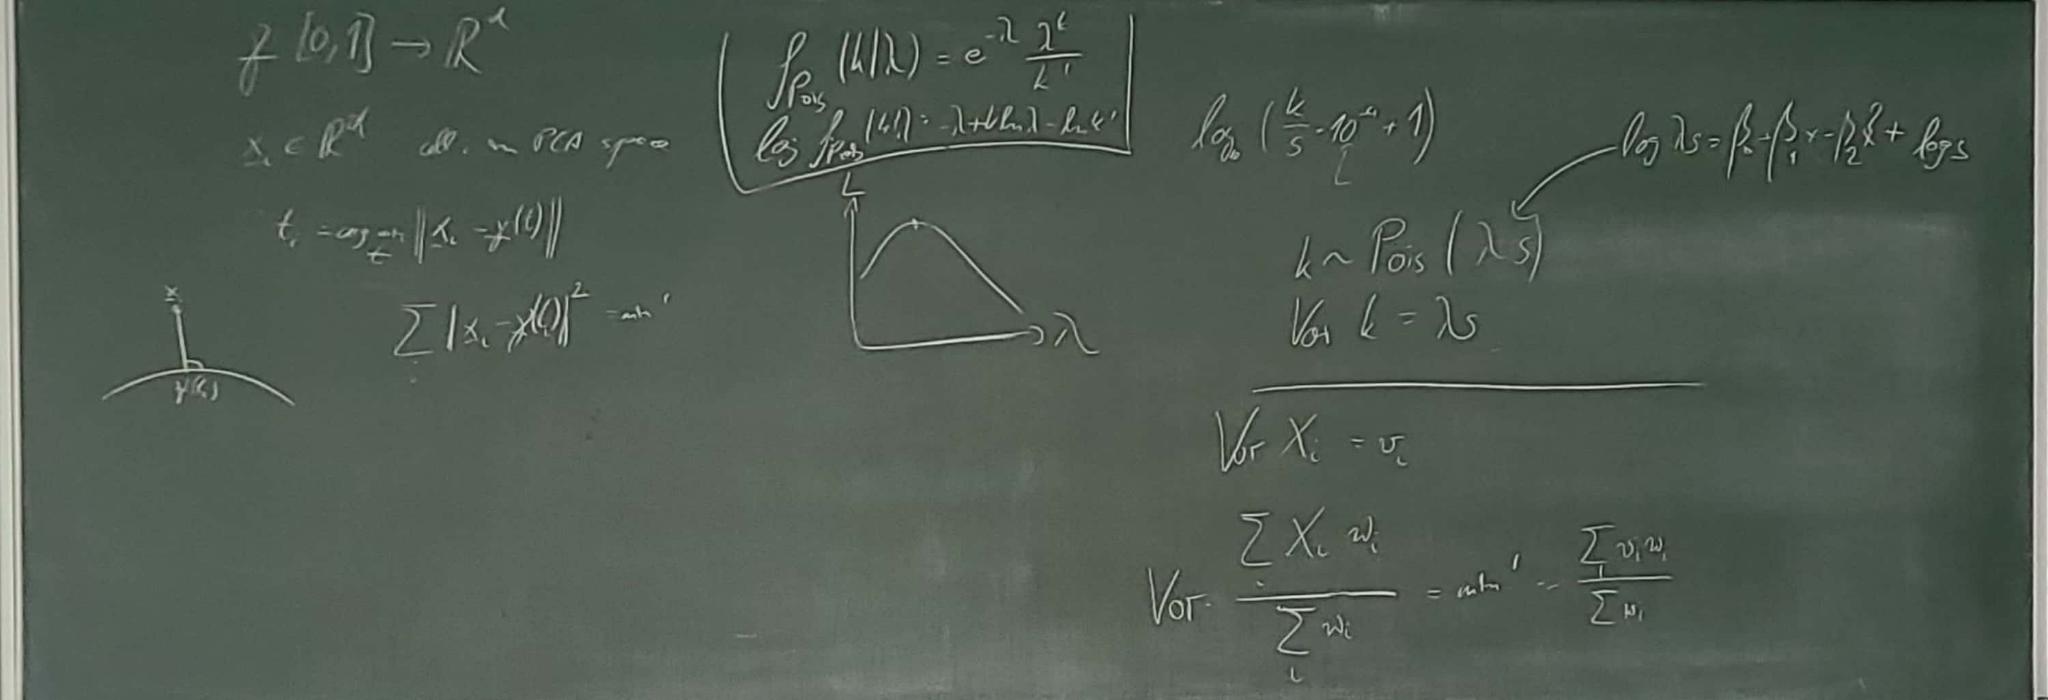 y [0,1] → ℝ^d
x_i ∈ ℝ^d cell i in PCA space
t_i = arg min_t ‖x_i - y(t)‖
∑_i |x_i - y(t_i)|² = min!
x_i
y(t_i)
f_Pois (k|λ) = e^{-λ} λ^k / k!
log f_Pois (k|λ) = -λ + k ln λ - ln k!
L
λ
log_10 (k/s · 10^4 + 1)
log λs = β_0 + β_1 x + β_2 x² + log s
k ~ Pois (λs)
Var k = λs
Var X_i = v_i
Var ∑_i X_i w_i / ∑_i w_i = min! = ∑_i v_i w_i / ∑ w_i